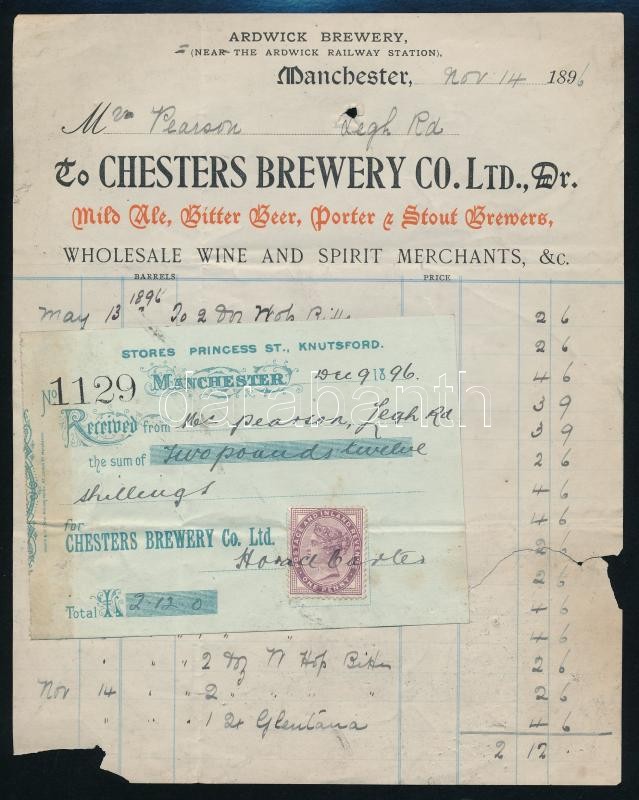 ARDWICK BREWERY,
(NEAR THE ARDWICK RAILWAY STATION),
Manchester, Nov 14 1896
Mrs Pearson Legh Rd
To CHESTERS BREWERY CO. LTD., Dr.
Mild Ale, Bitter Beer, Porter & Stout Brewers,
WHOLESALE WINE AND SPIRIT MERCHANTS, &c.
BARRELS PRICE
1896
May 13 To 2 Doz 2 6
2 6
4 6
3 9
3 9
2 6
4 6
4 6
2 6
2 6
4 6
4 6
" " 2 Doz N Hop Bitter 2 6
Nov 14 " " 2 " " " 2 6
" " 1 2/ Glentana 4 6
2 12 .
STORES PRINCESS ST., KNUTSFORD.
No 1129 MANCHESTER Dec 9 1896.
Received from Mrs Pearson, Legh Rd
the sum of Two pounds twelve
shillings
for
CHESTERS BREWERY Co. Ltd.
Horace
Total £ 2.12.0
POSTAGE AND INLAND REVENUE
ONE PENNY
darabanth